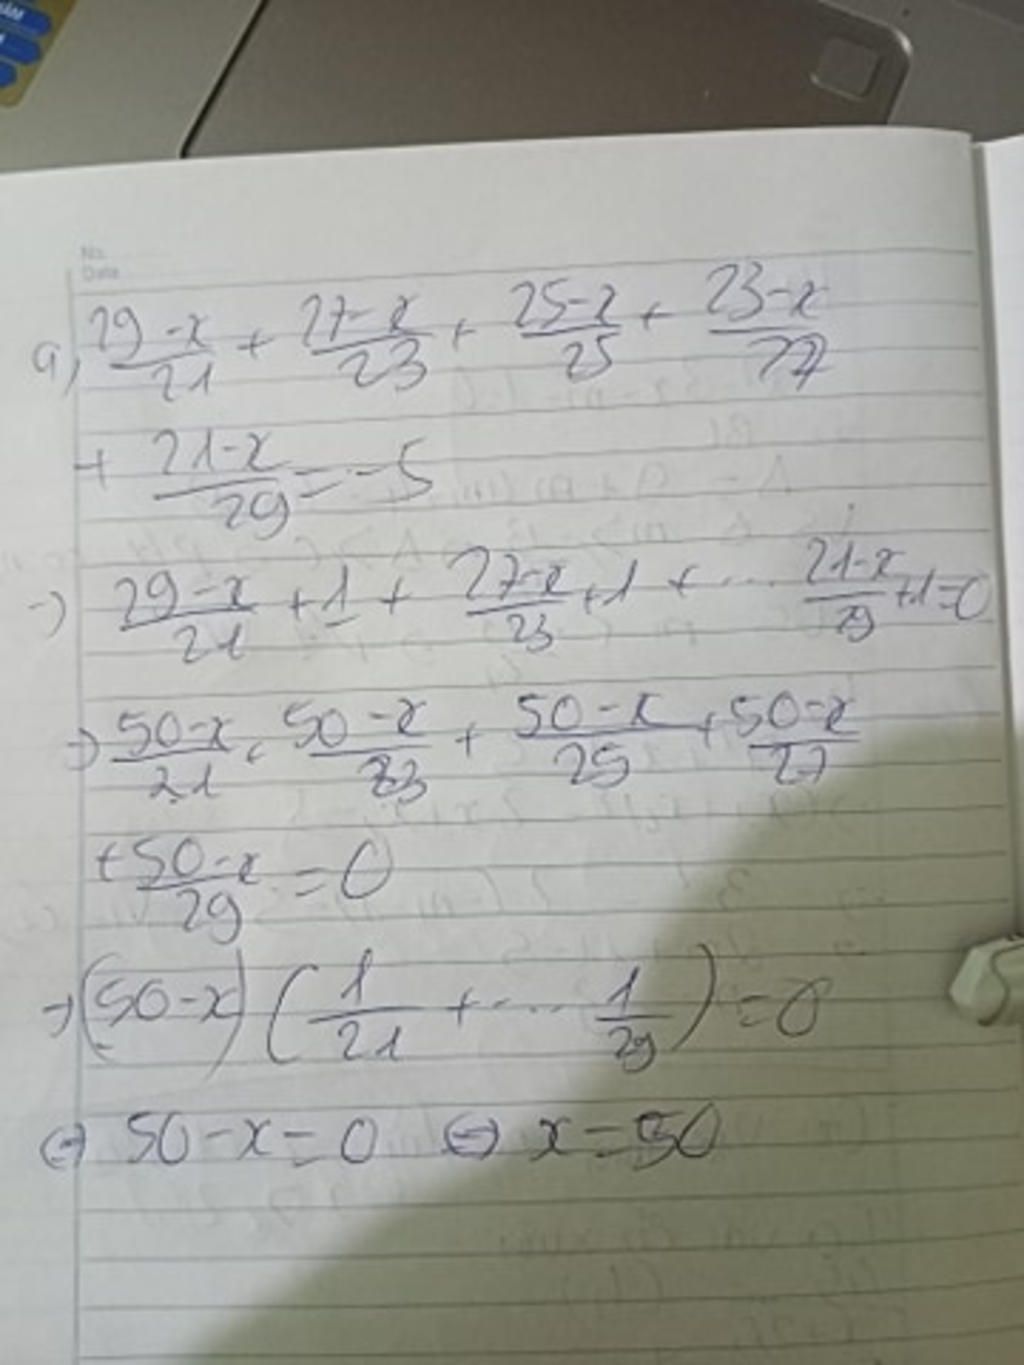 No.
Date
a) \frac{29-x}{21} + \frac{27-x}{23} + \frac{25-x}{25} + \frac{23-x}{27}
+ \frac{21-x}{29} = -5
-) \frac{29-x}{21} + 1 + \frac{27-x}{23} + 1 + ... \frac{21-x}{29} + 1 = 0
=) \frac{50-x}{21} + \frac{50-x}{23} + \frac{50-x}{25} + \frac{50-x}{27}
+ \frac{50-x}{29} = 0
-) (50-x) ( \frac{1}{21} + ... \frac{1}{29} ) = 0
<=> 50-x=0 <=> x=50